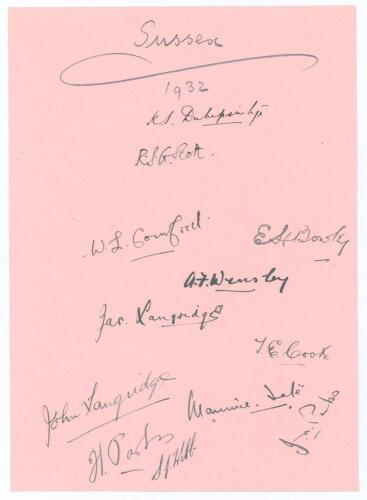 Sussex
1932
K.S. Duleepsinhji
R.S.G. Scott.
W.L. Cornford.
E H Bowley
A.F. Wensley
Jas. Langridge
T.E. Cook
John Langridge
Maurice Tate
H. Parks